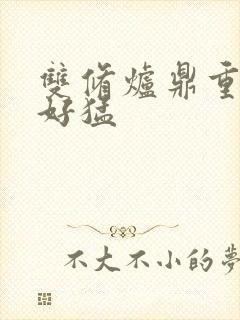 雙脩爐鼎重
好猛
不大不小的夢